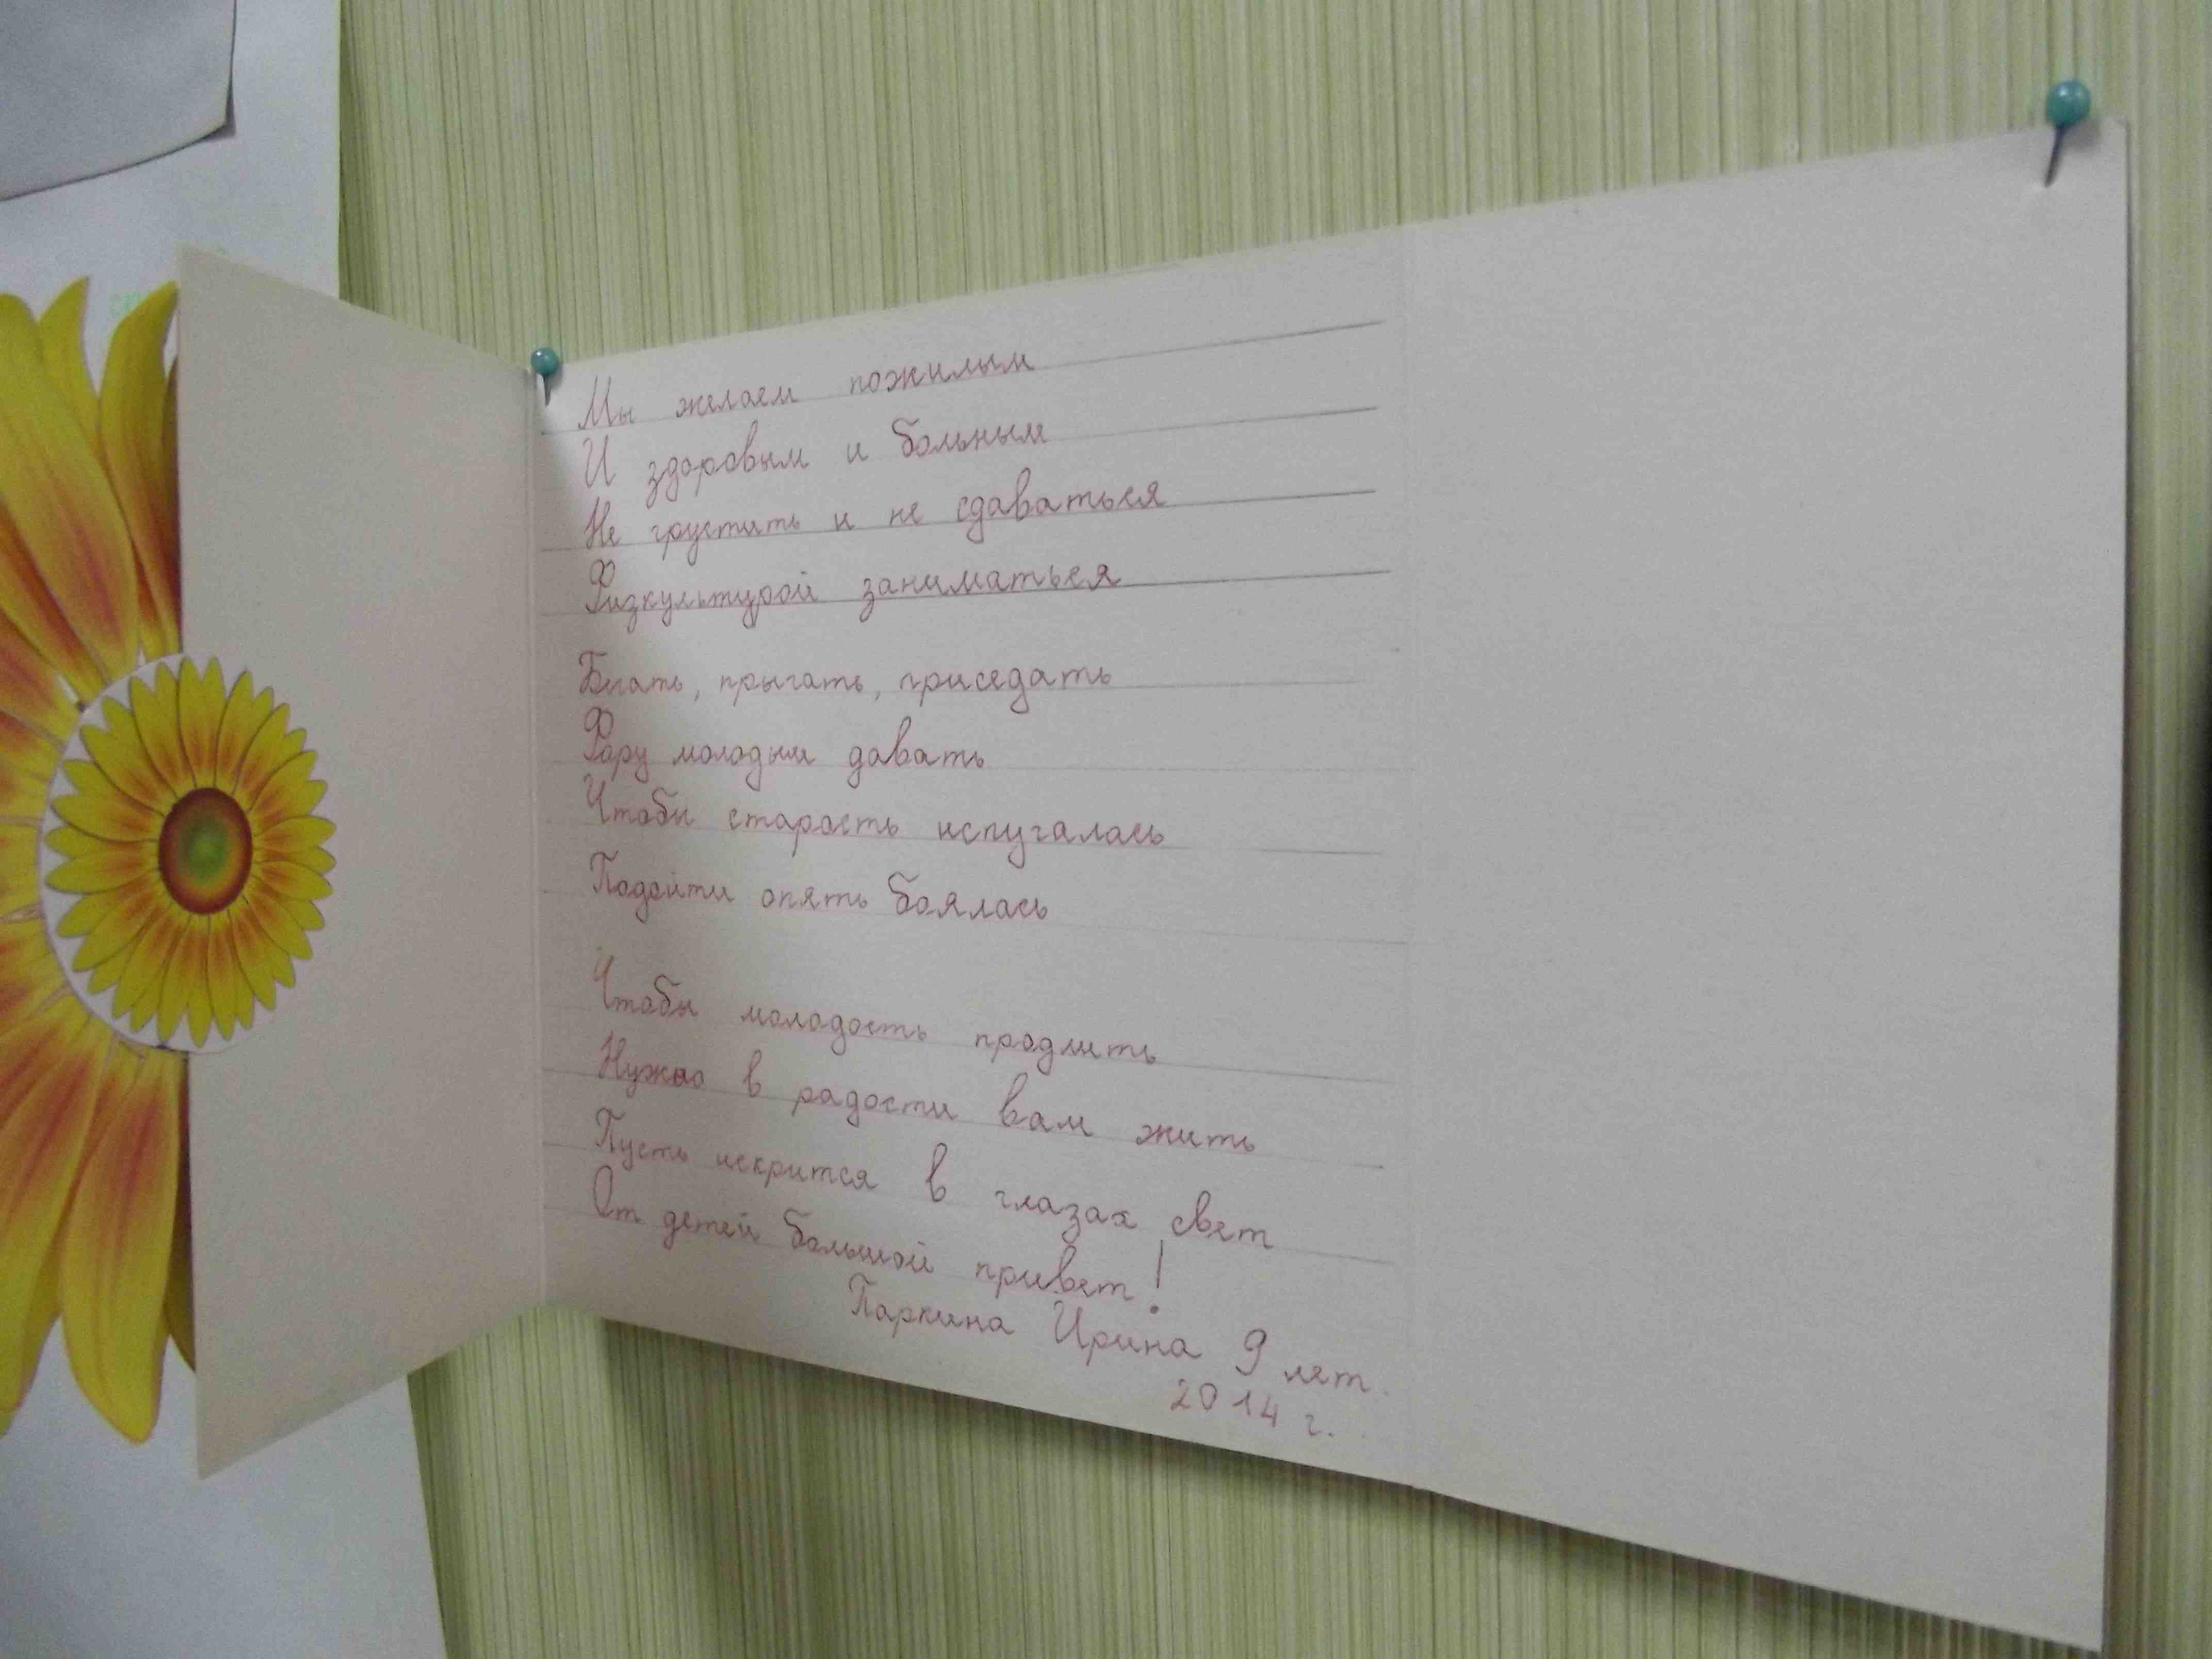 Мы желаем пожилым
И здоровым и больным
Не грустить и не сдаваться
Физкультурой заниматься
Бегать, прыгать, приседать
Фору молодым давать
Чтобы старость испугалась
Подойти опять боялась
Чтобы молодость продлить
Нужно в радости вам жить
Пусть искрится в глазах свет
От детей большой привет!
Паркина Ирина 9 лет.
2014 г.